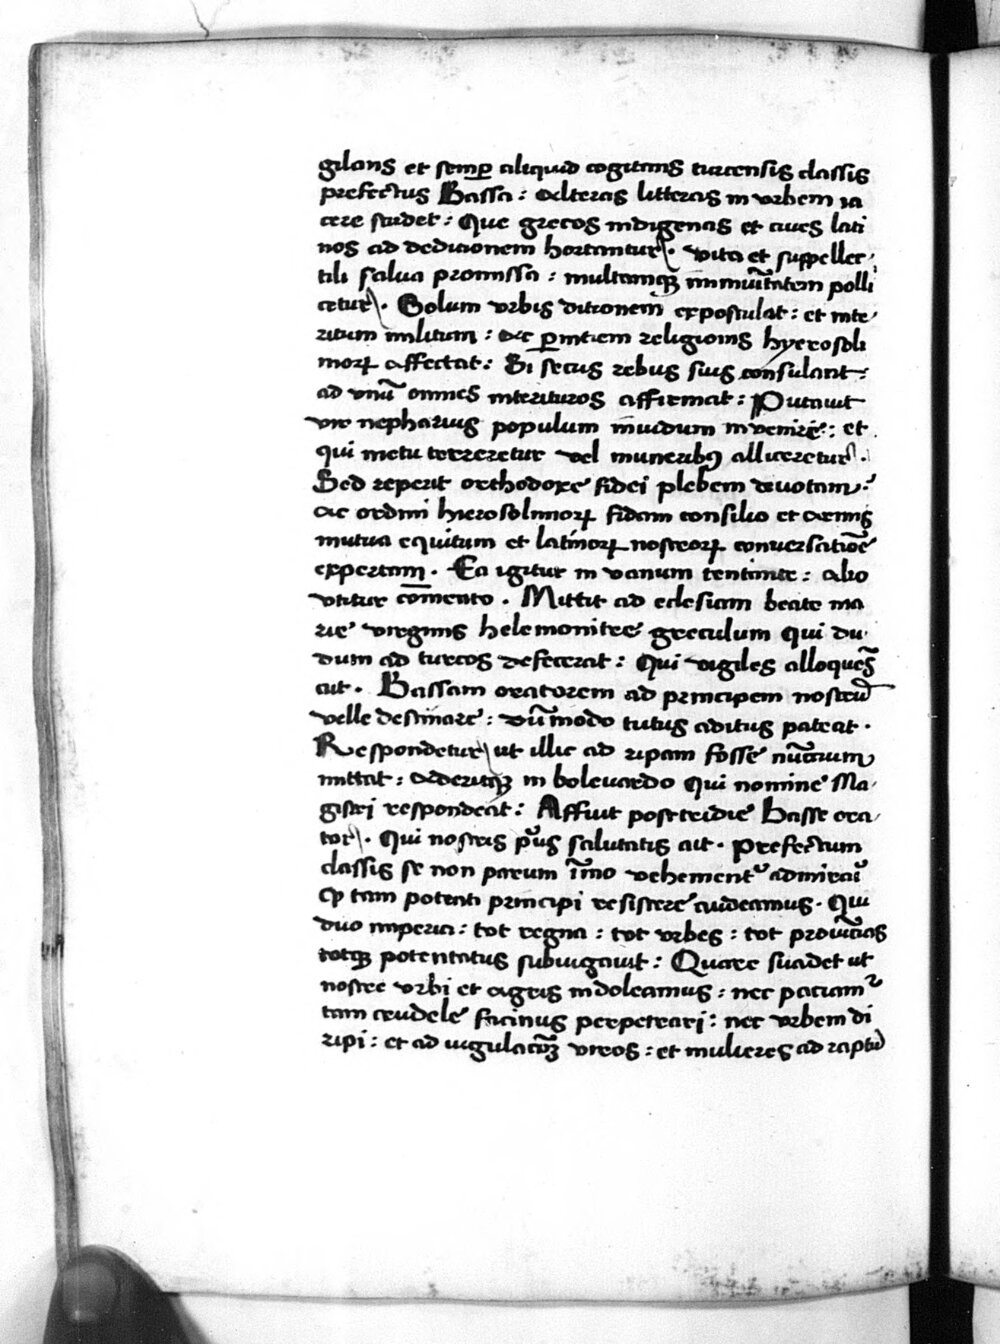 gilans et semꝑ aliquid cogitans turcensis classis
prefectus Bassa : Alteras litteras in urbem ia
cere studet : Que grecos indigenas et ciues lati
nos ad deditionem hortantur . vita et suppellec
tili salua promissa : multamqꝫ immuͥtatem polli
cetur . Solum urbis ditionem expostulat : et inte
ritum militum : ac ꝑnitiem religionis hyerosoli
moꝝ affectat : Si secus rebus suis consulant :
ad unū omnes interituros affirmat : Putauit
vir nepharius populum inuidum inuenire : et
qui metu terreretur vel muneribꝰ alliceretur .
Sed reperit orthodoxe fidei plebem deuotam :
ac ordini hierosolimoꝝ fidam consilio et armis
mutua equitum et latinoꝝ nostroꝝ conuersatiōe
expertam . Ea igitur in vanum tentante : alio
utitur comento . Mittit ad eclesiam beate ma
rie virginis helemonitre greculum qui du
dum ad turcos defecerat : Qui vigiles alloques̄
ait . Bassam oratorem ad principem nostrū
velle destinare : dūmodo tutus aditus pateat .
Respondetur ut illic ad ripam fosse nūtium
mittat : Aderitqꝫ in boleuardo qui nomine Ma
gistri respondeat : Affuit postridie Basse ora
tor . Qui nostris pͥus salutatis ait . prefectum
classis se non parum īmo vehementꝰ admirari
ꝙ tam potenti principi resistere audeamus . Qui
duo imperia : tot regna : tot urbes : tot prouīcias
totqꝫ potentatus subiugauit : Quare suadet ut
nostre urbi et agris indoleamus : nec patiamᷣ
tam crudele facinus perpetrari : nec urbem di
ripi : et ad iugulatōꝫ viros : et mulieres ad raptū